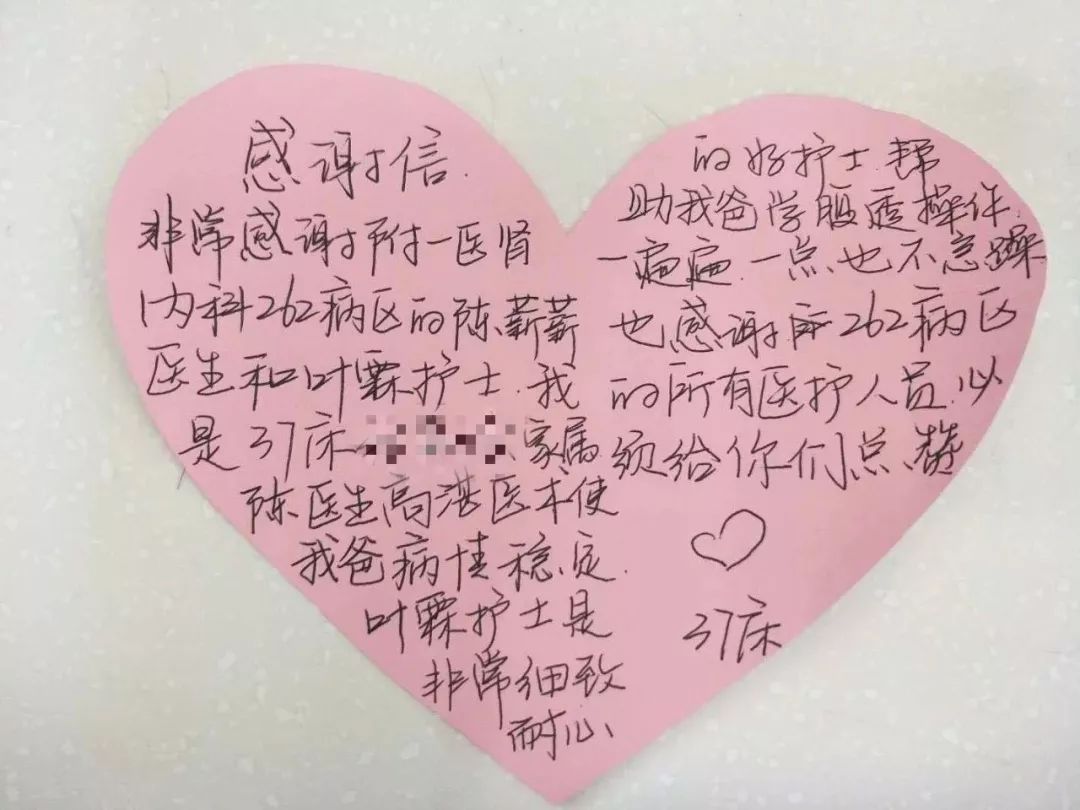 感谢信.
非常感谢附一医肾
内科262病区的陈薪薪
医生和叶霖护士.我
是37床 家属
陈医生高湛医术使
我爸病情稳定.
叶霖护士是
非常细致
耐心、
的好护士帮
助我爸学腹透操作.
一遍遍.一点也不急躁
也感谢 262病区
的所有医护人员.必
须给你们点赞
37床